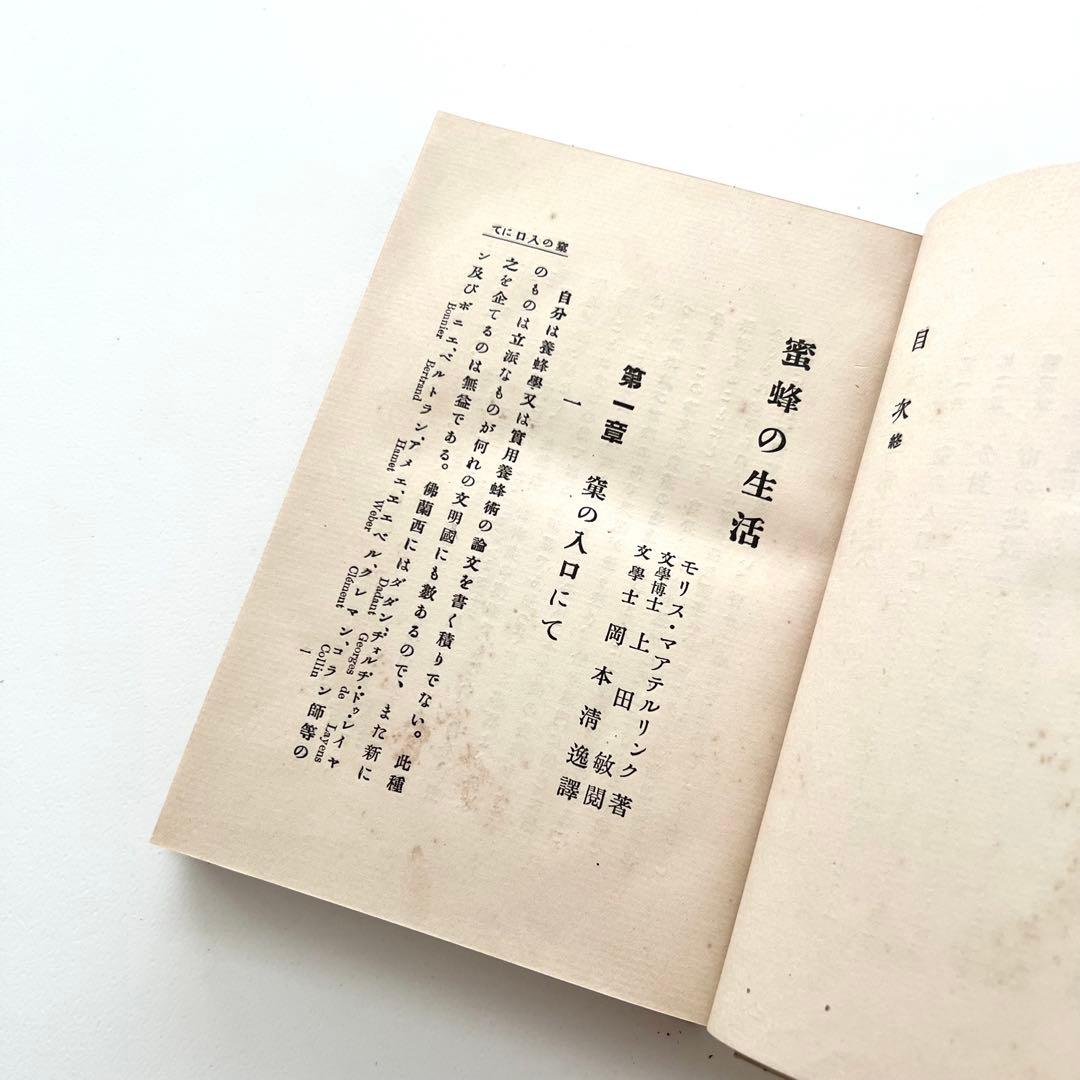 目次終
蜜蜂の生活
モリス・マアテルリンク著
文學博士 上田敏閲
文學士 岡本清逸譯
第一章 窠の入口にて
一
自分は養蜂學又は實用養蜂術の論文を書く積りでない。此種
のものは立派なものが何れの文明國にも數あるので、また新に
之を企てるのは無益である。佛蘭西にはダダン、ヂォルヂ・ドゥ・レイヤ
Dadant Georges de Layens
ン及びボニエ、ベルトラン、アメエ、エエベル、クレマン、コラン師等の
Bonnier Bertrand Hamet Weber Clément Collin
窠の入口にて
一